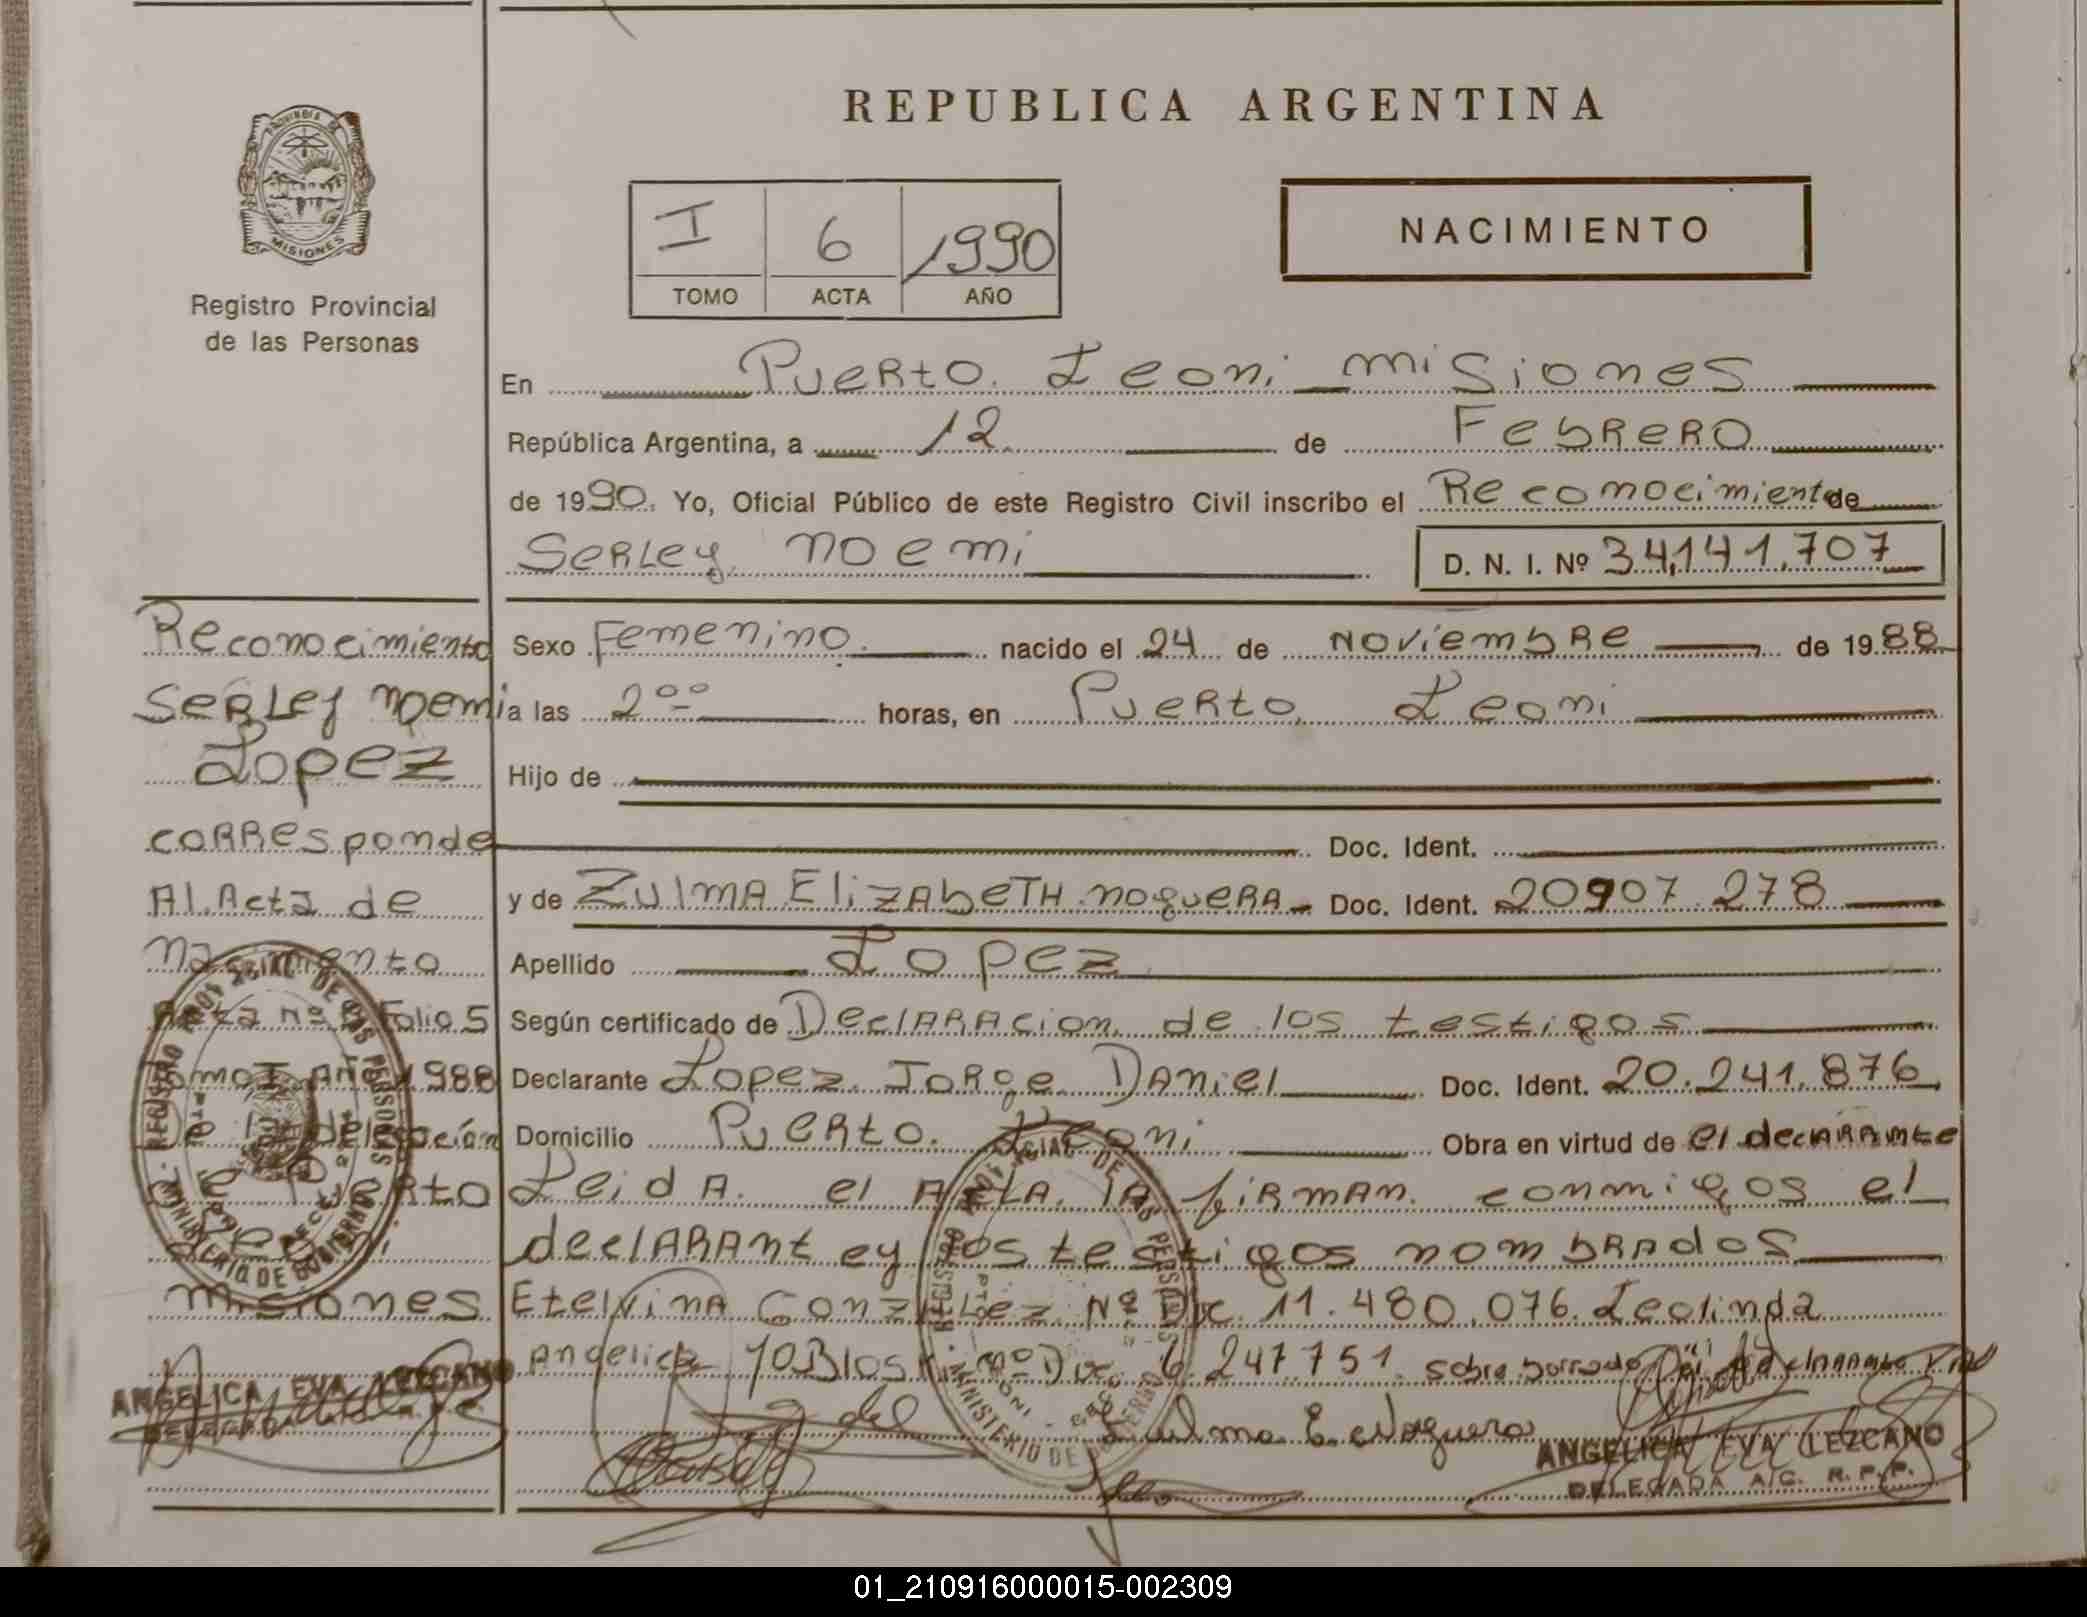 REPUBLICA ARGENTINA
PROVINCIA DE
MISIONES
Registro Provincial
de las Personas
I 6 1990
TOMO ACTA AÑO
NACIMIENTO
En Puerto Leoni Misiones
República Argentina, a 12 de Febrero
de 1990. Yo, Oficial Público de este Registro Civil inscribo el Reconocimiento de
Serley Noemi D. N. I. Nº 34,141,707
Sexo Femenino nacido el 24 de Noviembre de 1988
a las 2oo horas, en Puerto Leoni
Hijo de
Doc. Ident.
y de Zulma Elizabeth Noguera Doc. Ident. 20907 278
Apellido Lopez
Según certificado de Declaracion de los testigos
Declarante Lopez Jorge Daniel Doc. Ident. 20.241.876
Domicilio Puerto Leoni Obra en virtud de el declarante
Leida el Acta la firman conmigos el
declarant ey los testigos nombrados
Etelvina Gonzalez Nº Doc 11.480.076. Leolinda
Angelica Nº Doc 6.247751 sobre borrado
Zulma E. Noguera
ANGELICA EVA LEZCANO
DELEGADA A/C. R.P.P.
Reconocimiento
Serley Noemi
Lopez
corresponde
Al Acta de
Nacimiento
Acta Nº Folio 5
Tomo I Año 1988
De la delegación
de Puerto
Leoni
Misiones
ANGELICA EVA LEZCANO
REGISTRO PROVINCIAL DE LAS PERSONAS
MINISTERIO DE GOBIERNO
REGISTRO PROVINCIAL DE LAS PERSONAS
MINISTERIO DE GOBIERNO
01_210916000015-002309